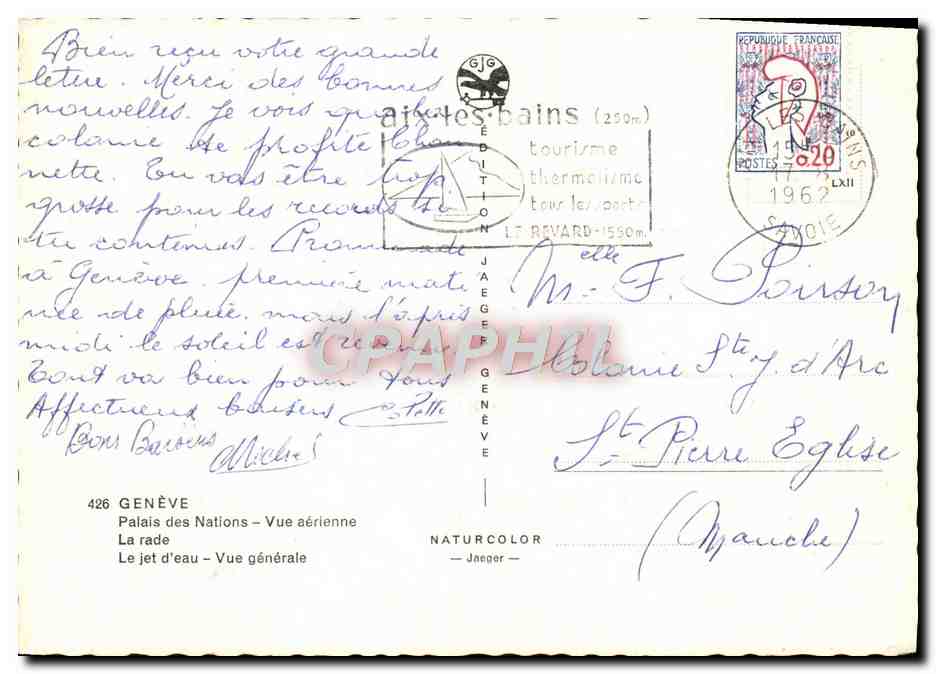 Bien reçu votre grande
lettre. Merci des bonnes
nouvelles. Je vois que la
colonie te profite
nette. Tu vas être trop
grosse pour les records si
tu continues. Promenade
à Genève. première mati
née de pluie. mais l'après
midi le soleil est revenu.
Tout va bien pour tous
Affectueux baisers
Bons Baisers
Michel
426 GENÈVE
Palais des Nations – Vue aérienne
La rade
Le jet d'eau – Vue générale
GJG
ÉDITION JAEGER GENÈVE
NATURCOLOR
— Jaeger —
aix-les-bains (250m)
tourisme
thermalisme
tous les sports
LE REVARD-1550m.
REPUBLIQUE FRANÇAISE
POSTES 0,20
LES BAINS
15H
17-8
1962
SAVOIE
LXII
Melle F. Poirson
Colonie Ste J. d'Arc
St Pierre Eglise
(Manche)
CPAPHIL